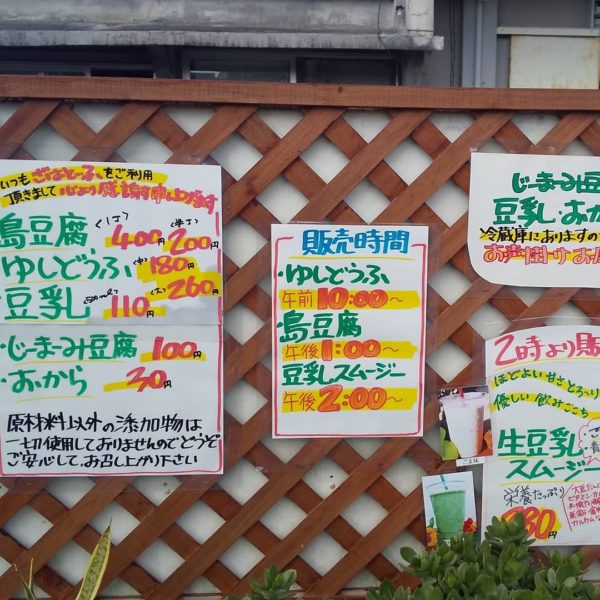 いつもござとーふをご利用
頂きまして心より感謝申し上げます
島豆腐 (1丁) 400円 (半丁) 200円
ゆしどうふ (中) 180円
豆乳 (500ml) 110円 (大) 260円
・じーまーみ豆腐 100円
・おから 30円
原材料以外の添加物は
一切使用しておりませんのでどうぞ
ご安心してお召し上がり下さい
販売時間
・ゆしどうふ
午前10:00〜
・島豆腐
午後1:00〜
豆乳スムージー
午後2:00〜
じーまーみ豆
豆乳・おか
冷蔵庫にありますので
お声掛け
2時より販
ほどよい甘さとろ〜り
優しい飲みごこち
生豆乳
スムージー
栄養たっぷり